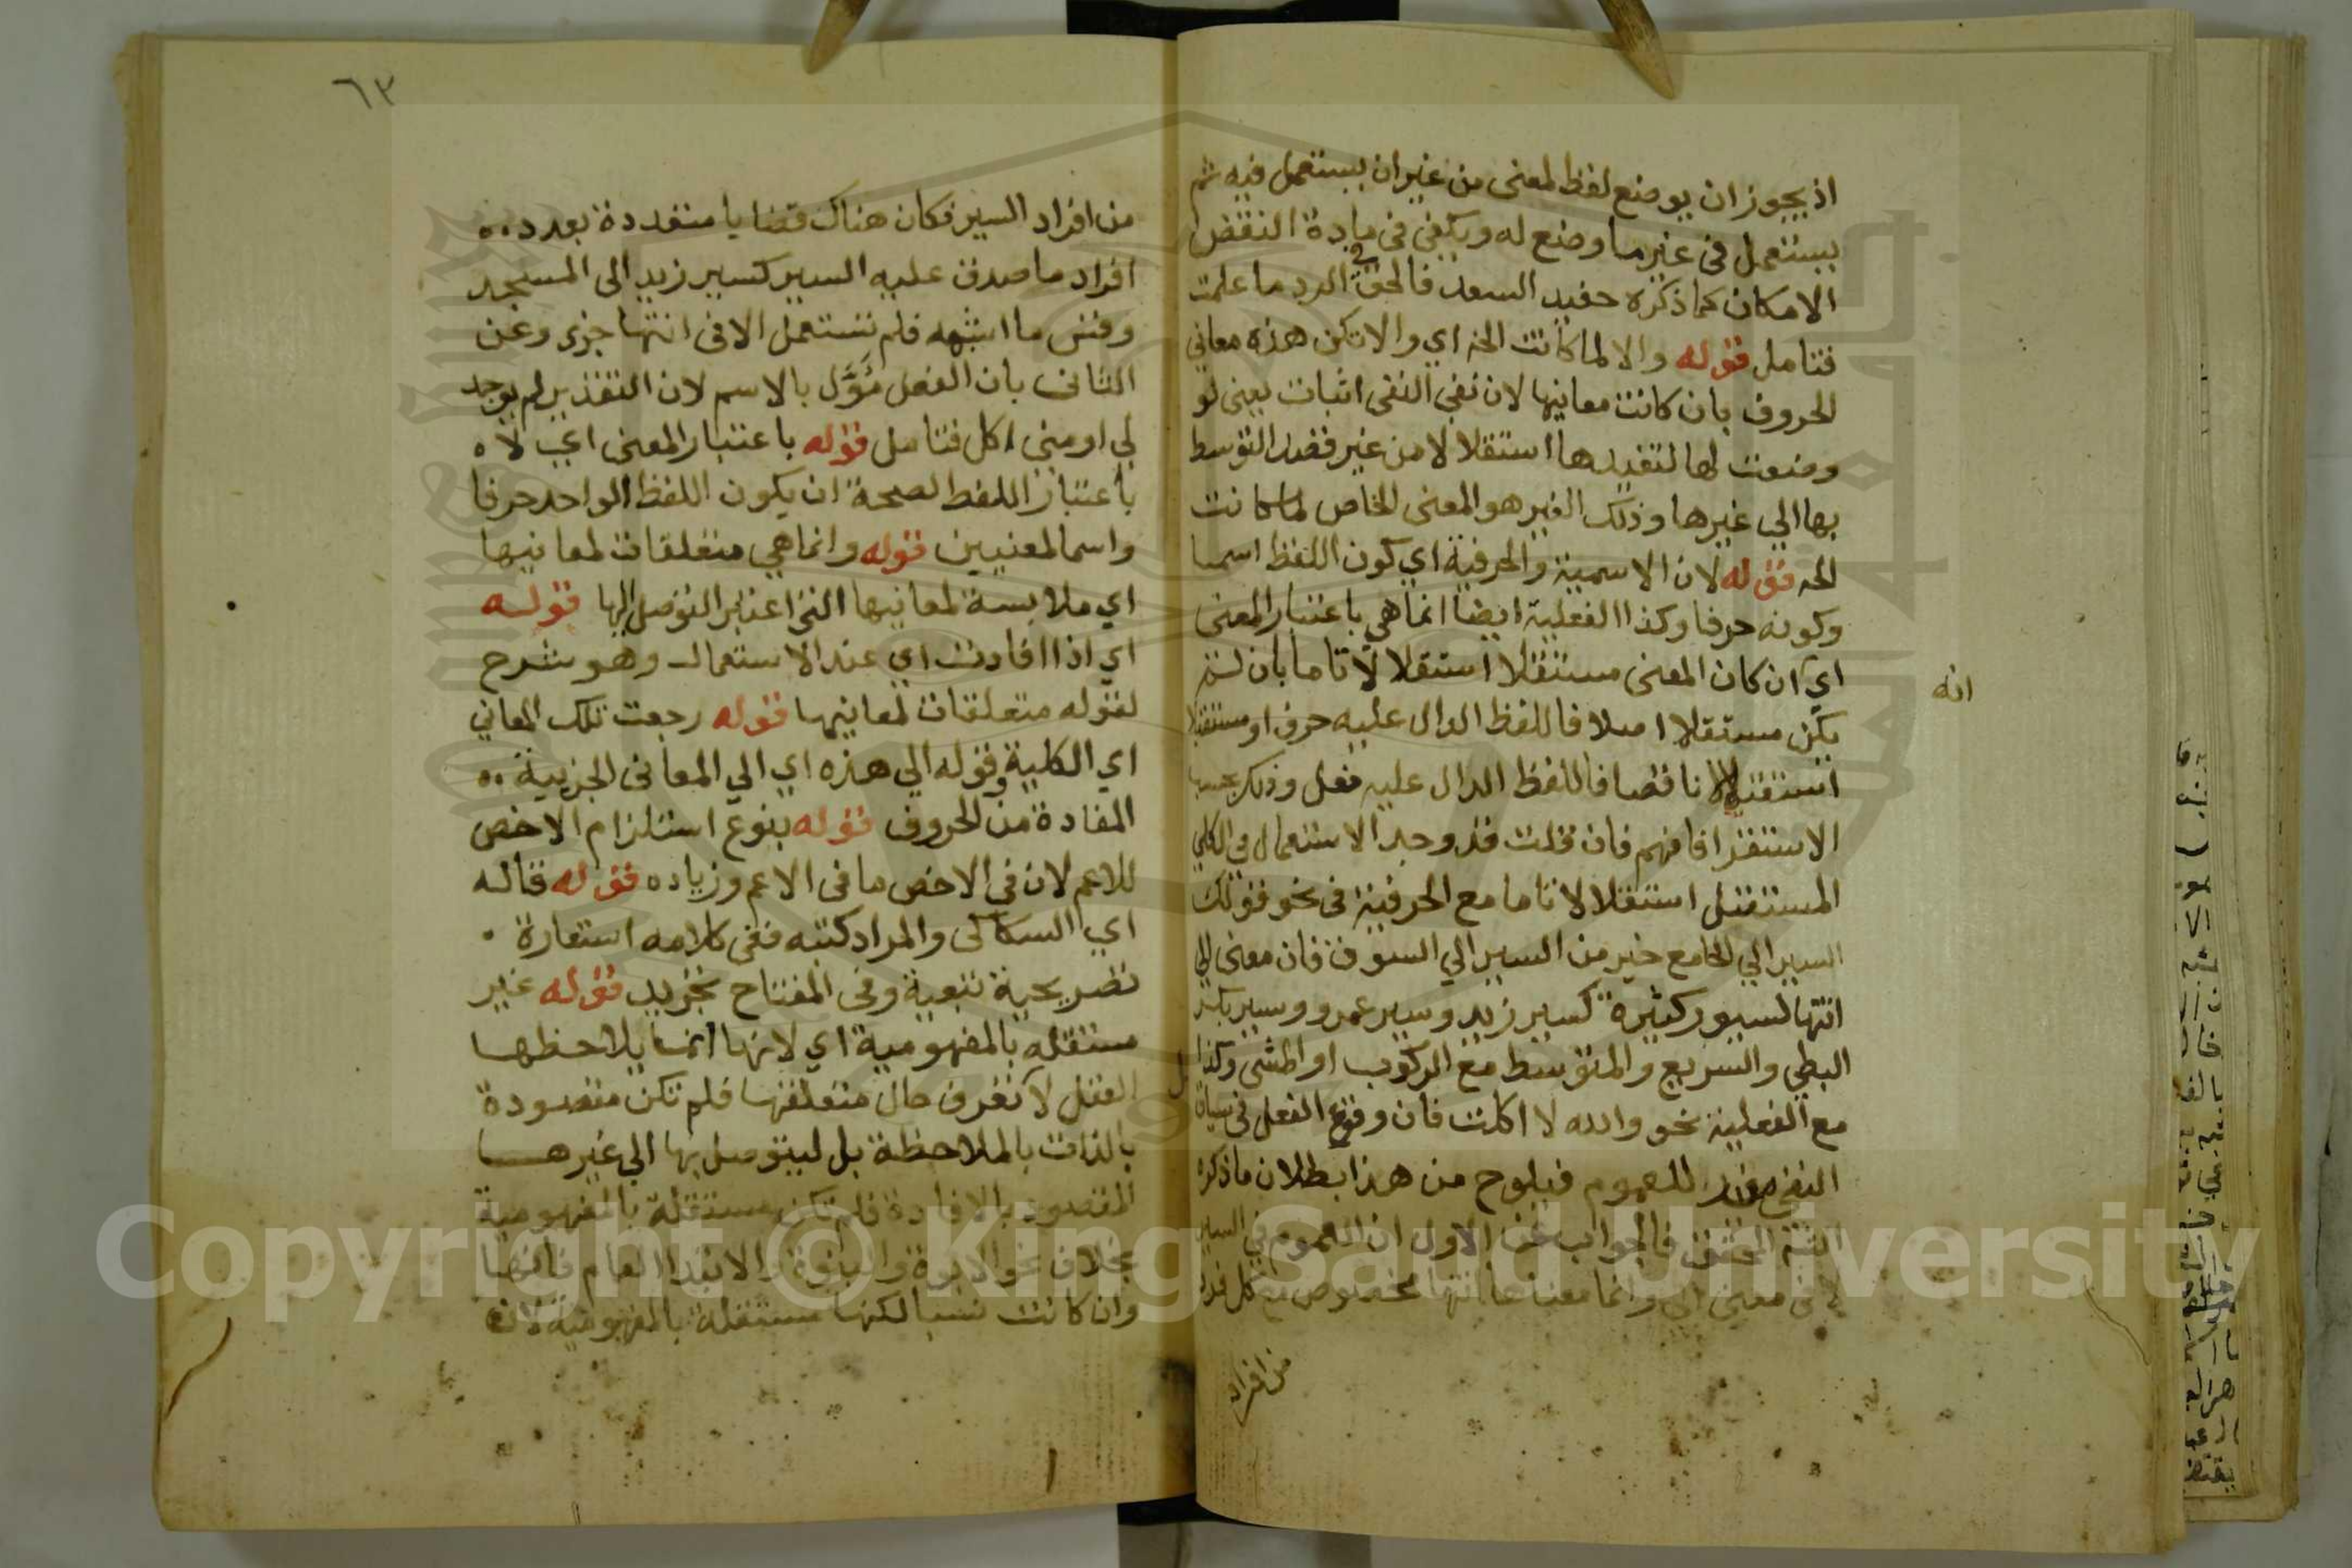 اذ يجوز ان يوضع لفظ لمعنى من غير ان يستعمل فيه ثم
يستعمل في غير ما وضع له ويكفي في مادة النقض
الامكان كما ذكره حفيد السعد فالحق الرد ما علمت
فتامل قوله والا لما كانت الخ اي والا تكن هذه معاني
الحروف بان كانت معانيها لان نفي النفي اثبات يعني لو
وضعت لها لتفيدها استقلالا من غير قصد التوسط
بها الي غيرها وذلك الغير هو المعنى الخاص لما كانت
الخ قوله لان الاسمية والحرفية اي كون اللفظ اسما
وكونه حرفا وكذا الفعلية ايضا انما هي باعتبار المعنى
اي ان كان المعنى مستقلا استقلالا تاما بان لم
انه
يكن مستقلا اصلا فاللفظ الدال عليه حرف او مستقلا
استقلالا ناقصا فاللفظ الدال عليه فعل وذلك بحسب
الاستقرا فافهم فان قلت قد وجد الاستعمال في الكلي
المستقل استقلالا تاما مع الحرفية في نحو قولك
السير الي الجامع خير من السير الي السوق فان معنى الي
انتها لسيور كثيرة كسير زيد وسير عمرو وسير بكر
البطي والسريع والمتوسط مع الركوب او المشي وكذا
مع الفعلية نحو والله لا اكلت فان وقوع الفعل في سياق
النفي للعموم فيلوح من هذا بطلان ما ذكره
المحقق فالجواب عن الاول ان العموم في السير
لا في معنى الي وانما معناها انتها مخصوص مع كل فرد
من افراد
٦٣
من افراد السير فكان هناك قضايا متعددة بعدد
افراد ما صدق عليه السير كسير زيد الى المسجد
وقس ما اشبهه فلم تستعمل الا في انتها جزي وعن
الثاني بان الفعل مؤول بالاسم لان التقدير لم يوجد
لي او مني اكل فتامل قوله باعتبار المعنى اي لا
باعتبار اللفظ لصحة ان يكون اللفظ الواحد حرفا
واسما لمعنيين قوله وانما هي متعلقات لمعانيها
اي ملابسة لمعانيها التي اعتبر التوصل اليها قوله
اي اذا افادت اي عند الاستعمال وهو شرح
لقوله متعلقات لمعانيها قوله رجعت تلك المعاني
اي الكلية وقوله الي هذه اي الي المعاني الجزيية
المفادة من الحروف قوله بنوع استلزام الاخص
للاعم لان في الاخص ما في الاعم وزياده قوله قاله
اي السكاكي والمراد كتبه ففي كلامه استعارة
تصريحية تبعية وفي المفتاح تجريد قوله غير
مستقله بالمفهومية اي لانها انما يلاحظها
العقل لا تعرف حال متعلقها فلم تكن مقصودة
بالذات بالملاحظة بل ليتوصل بها الي غيرها
المقصود بالافادة فلم تكن مستقلة بالمفهومية
بخلاف نحو الابوة والبنوة والابتدا العام فانها
وان كانت نسبا لكنها مستقلة بالمفهومية لان
Copyright © King Saud University